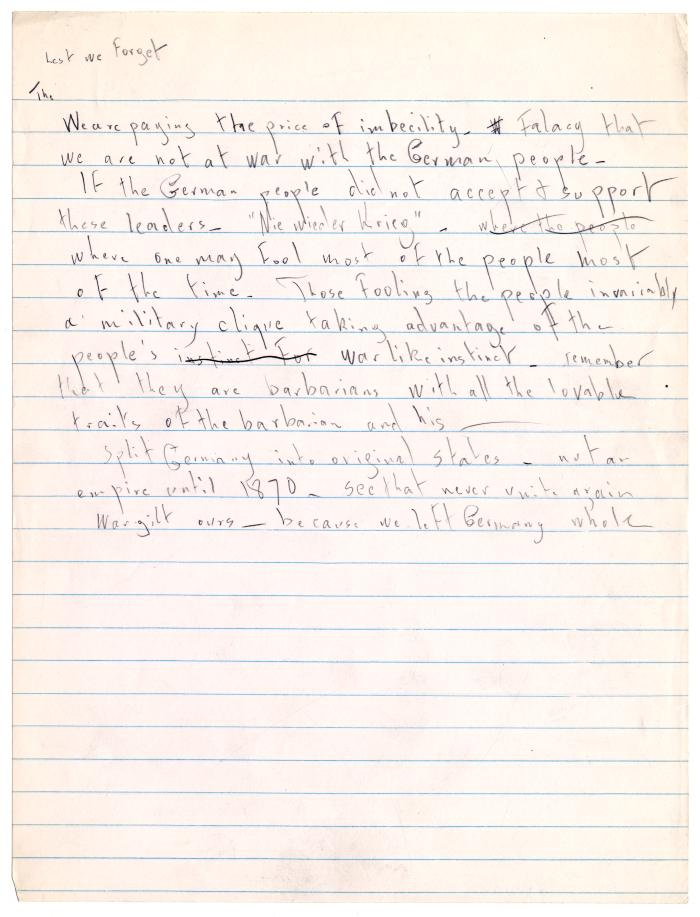 Lest we Forget
The
We are paying the price of imbecility - # Falacy that
we are not at war with the German people -
If the German people did not accept & support
these leaders - "Nie wieder Krieg" - where the people
where one may fool most of the people most
of the time - Those fooling the people invariably
a military clique taking advantage of the
people's instinct for warlike instinct - remember
that they are barbarians with all the lovable
traits of the barbarian and his
Split Germany into original states - not an
empire until 1870 - see that never unite again
War gilt ours - because we left Germany whole